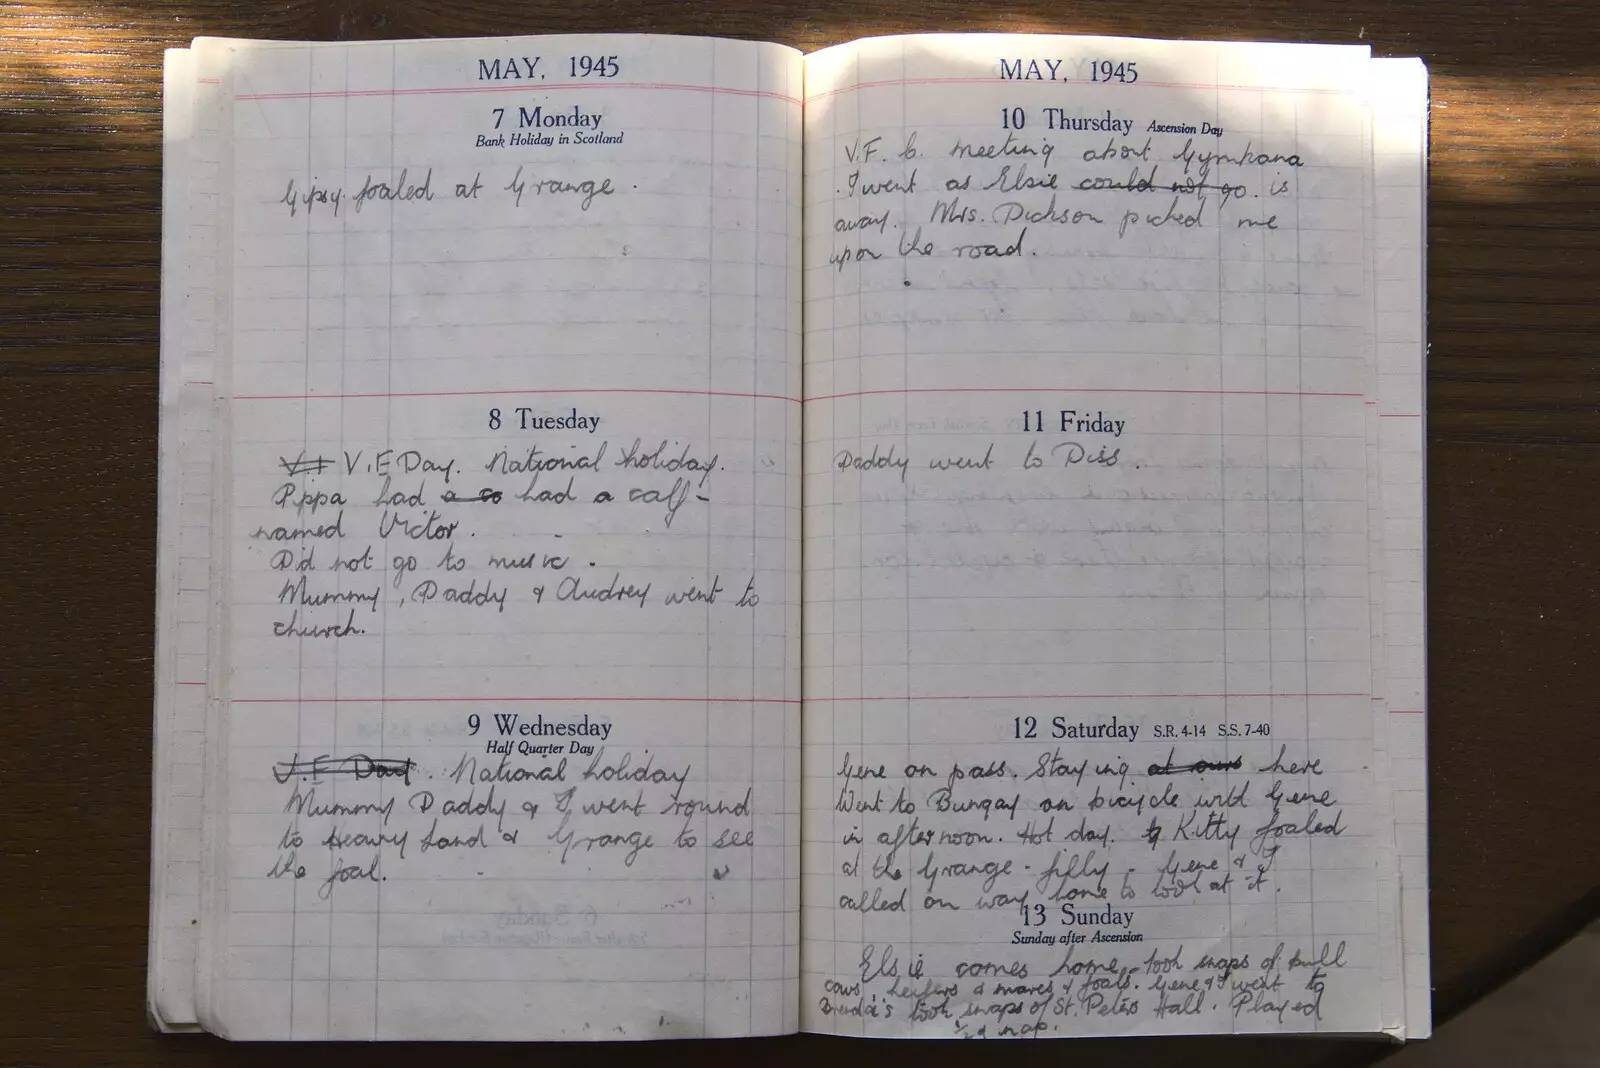 MAY, 1945
7 Monday
Bank Holiday in Scotland
Gipsy foaled at Grange.
8 Tuesday
V.E Day. National holiday.
Pippa had a co had a calf -
named Victor.
Did not go to music.
Mummy, Daddy & Audrey went to
church.
9 Wednesday
Half Quarter Day
V.E Day. National holiday
Mummy Daddy & I went round
to Heavy Land & Grange to see
the foal.
MAY, 1945
10 Thursday Ascension Day
V.F. C. meeting about Gymkana
. I went as Elsie could not go. is
away. Mrs. Dickson picked me
up on the road.
11 Friday
Daddy went to Diss.
12 Saturday S.R. 4-14 S.S. 7-40
Gene on pass. Staying at ours here
Went to Bungay on bicycle with Gene
in afternoon. Hot day. Kitty foaled
at the Grange - filly. Gene & I
called on way home to look at it.
13 Sunday
Sunday after Ascension
Elsie comes home. took snaps of bull
cows, heifers & mares & foals. Gene & I went to
Brenda's took snaps of St. Peters Hall. Played